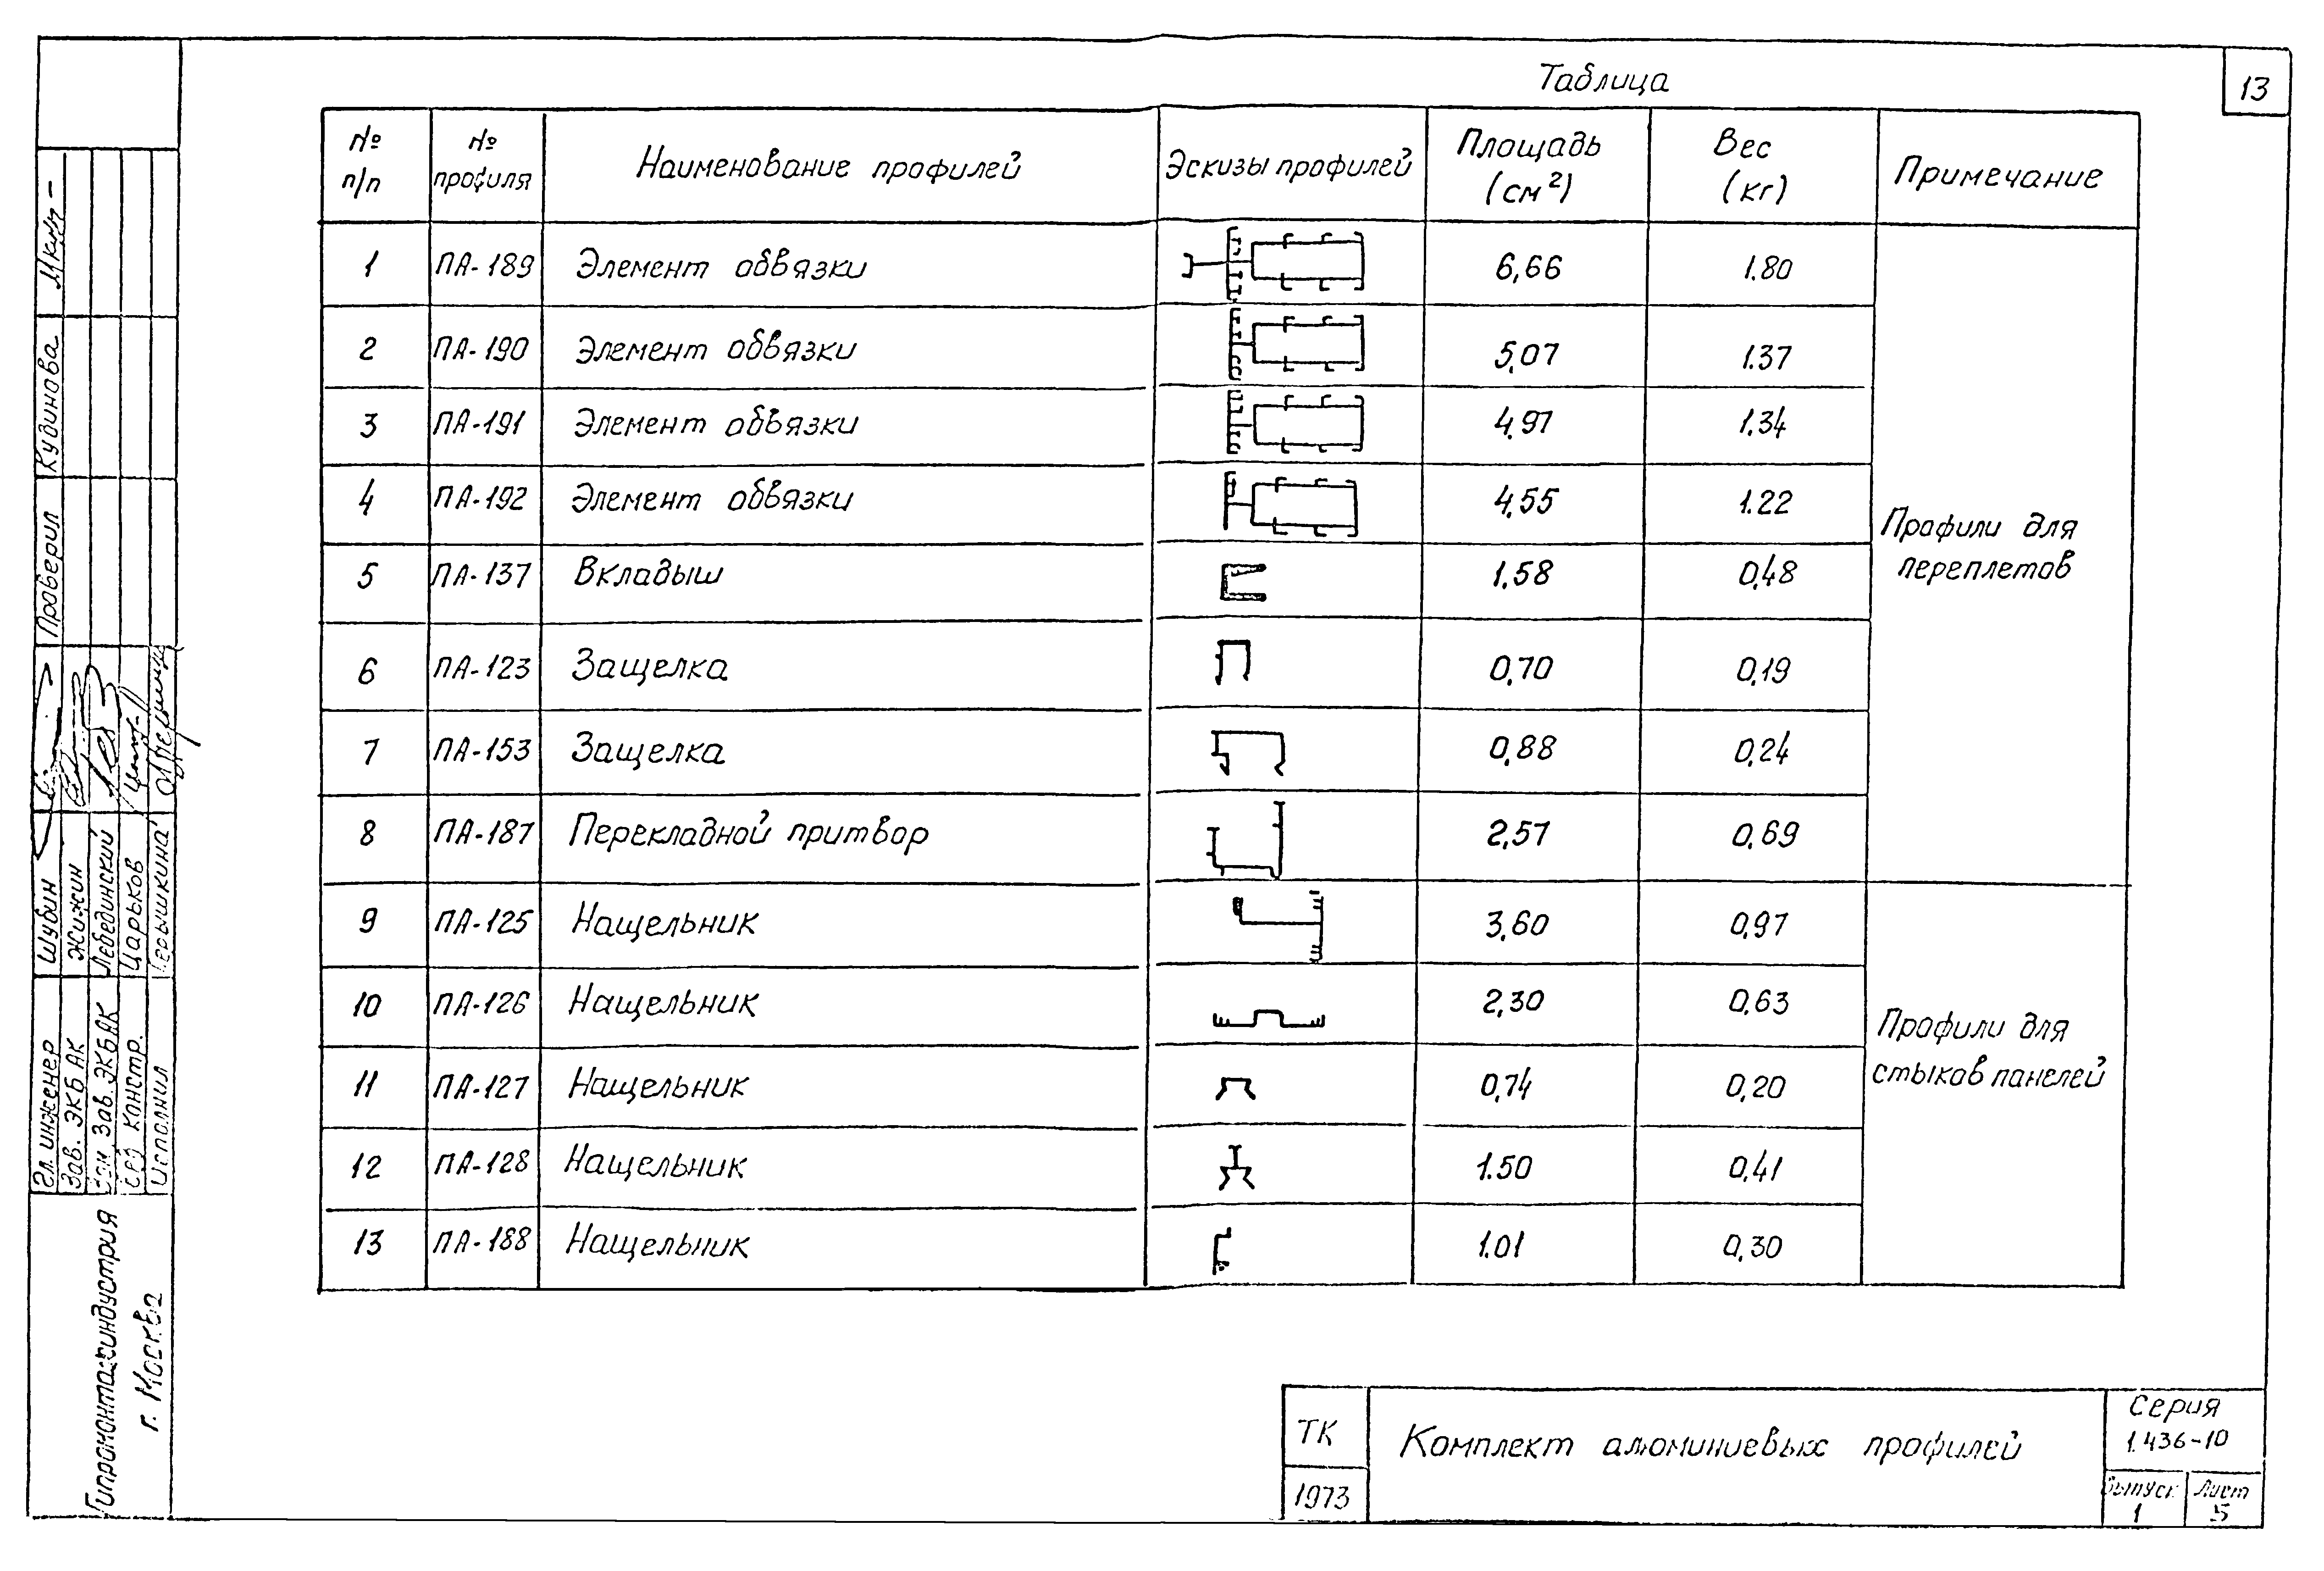 Таблица
13
№ п/п
№ профиля
Наименование профилей
Эскизы профилей
Площадь (см²)
Вес (кг)
Примечание
1 ПА-189 Элемент обвязки 6,66 1.80
2 ПА-190 Элемент обвязки 5,07 1.37
3 ПА-191 Элемент обвязки 4,97 1.34
4 ПА-192 Элемент обвязки 4,55 1.22
Профили для
переплетов
5 ПА-137 Вкладыш 1.58 0,48
6 ПА-123 Защелка 0,70 0,19
7 ПА-153 Защелка 0,88 0,24
8 ПА-187 Перекладной притвор 2,57 0,69
9 ПА-125 Нащельник 3,60 0,97
10 ПА-126 Нащельник 2,30 0,63
Профили для
стыков панелей
11 ПА-127 Нащельник 0,74 0,20
12 ПА-128 Нащельник 1.50 0,41
13 ПА-188 Нащельник 1.01 0,30
ТК
1973
Комплект алюминиевых профилей
Серия
1.436-10
Выпуск
1
Лист
5
Гл. инженер Шубин Проверил Кудинова
Зав. ЭКБ АК Жижин
Зам. Зав. ЭКБ АК Лебединский
констр. Царьков
Исполнил
Гипромонтажиндустрия
г. Москва